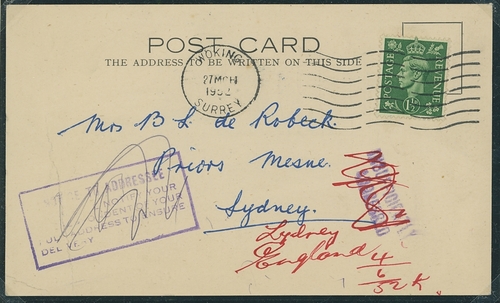 POST CARD
THE ADDRESS TO BE WRITTEN ON THIS SIDE
WOKING
27 MCH
1952
SURREY
POSTAGE REVENUE
1½D
Mrs B L de Robeck.
Priors Mesne.
Sydney.
ADDRESSEE
YOUR
YOUR
ADDRESS TO ENSURE
DELIVERY
Lydney
England
4
6
52